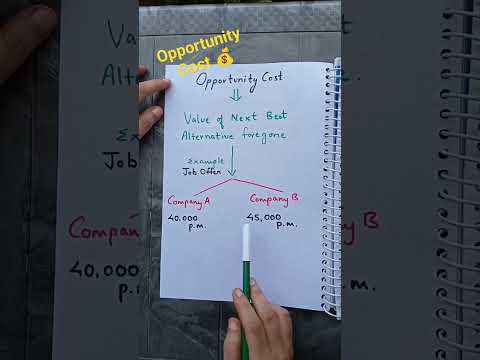 Opportunity
Cost 💰
Opportunity Cost
Value of Next Best
Alternative foregone
Example
Job Offer
Company A
40,000
p.m.
Company B
45,000
p.m.